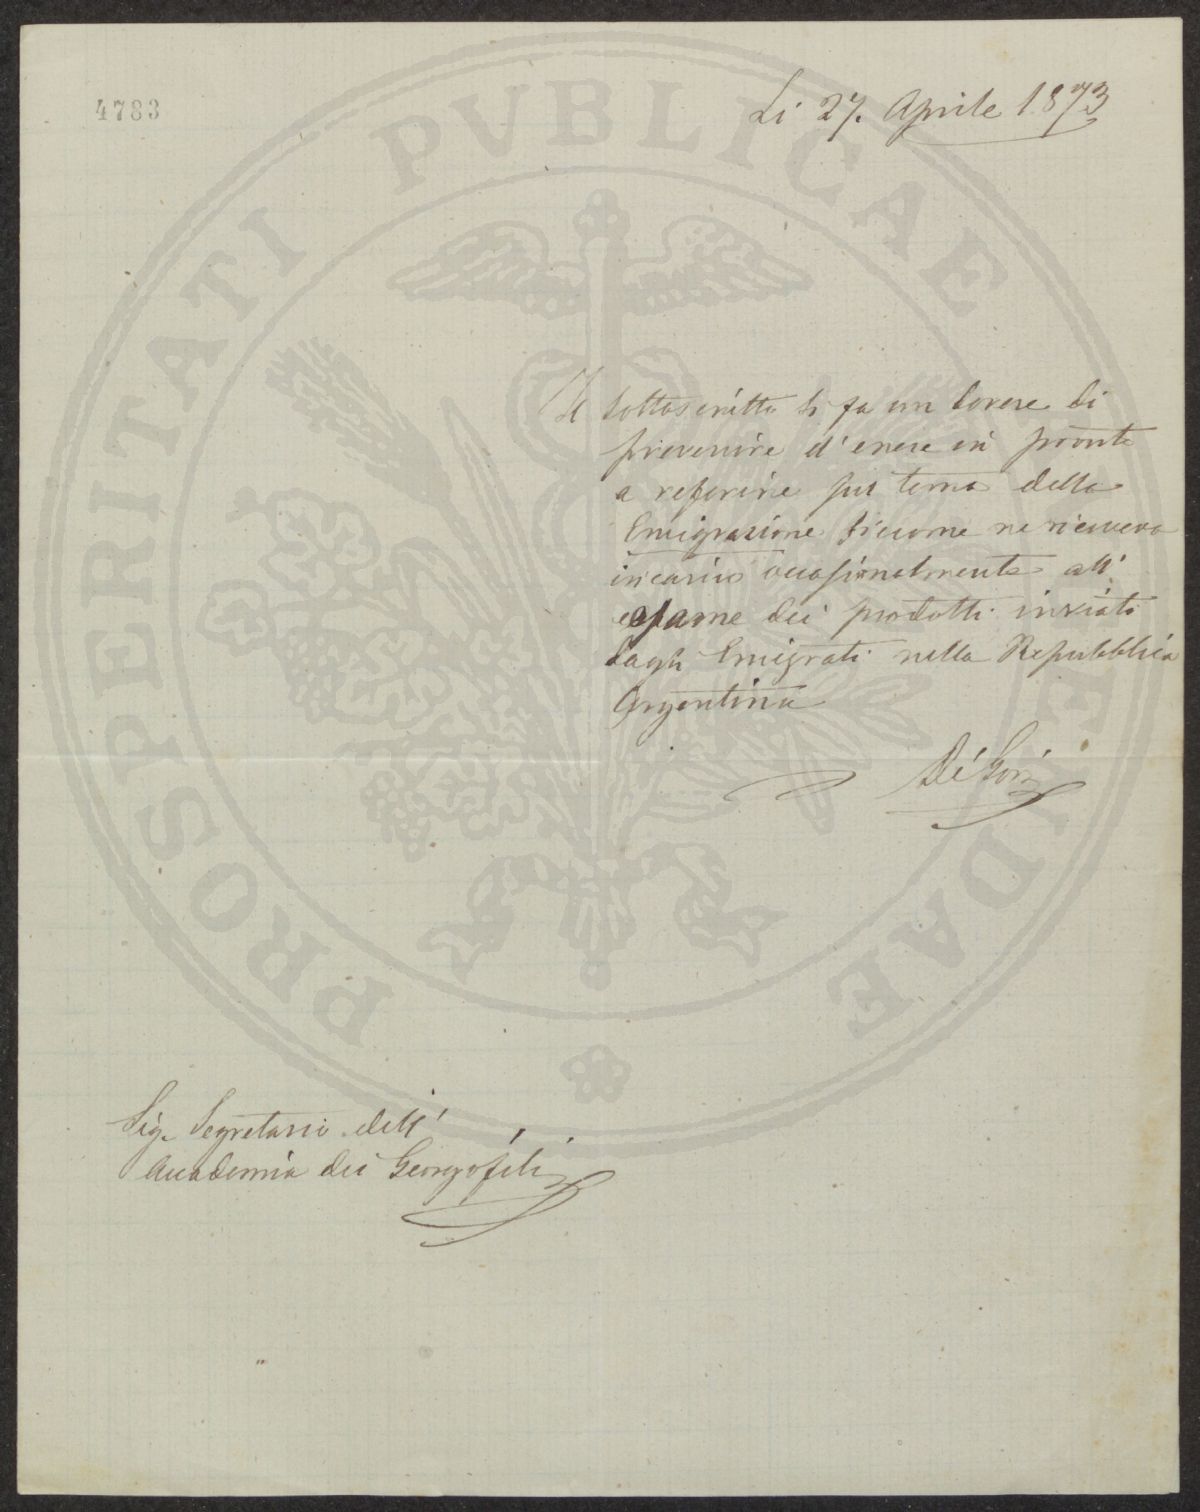 4783
Li 27. Aprile 1873
Il sottoscritto si fa un dovere di
prevenire d'essere in pronto
a referire sul tema della
Emigrazione siccome ne riceveva
incarico occasionalmente all'
esame dei prodotti inviati
dagli Emigrati nella Repubblica
Argentina
De' Gori
Sig. Segretario dell'
Accademia dei Georgofili
PROSPERITATI PVBLICAE